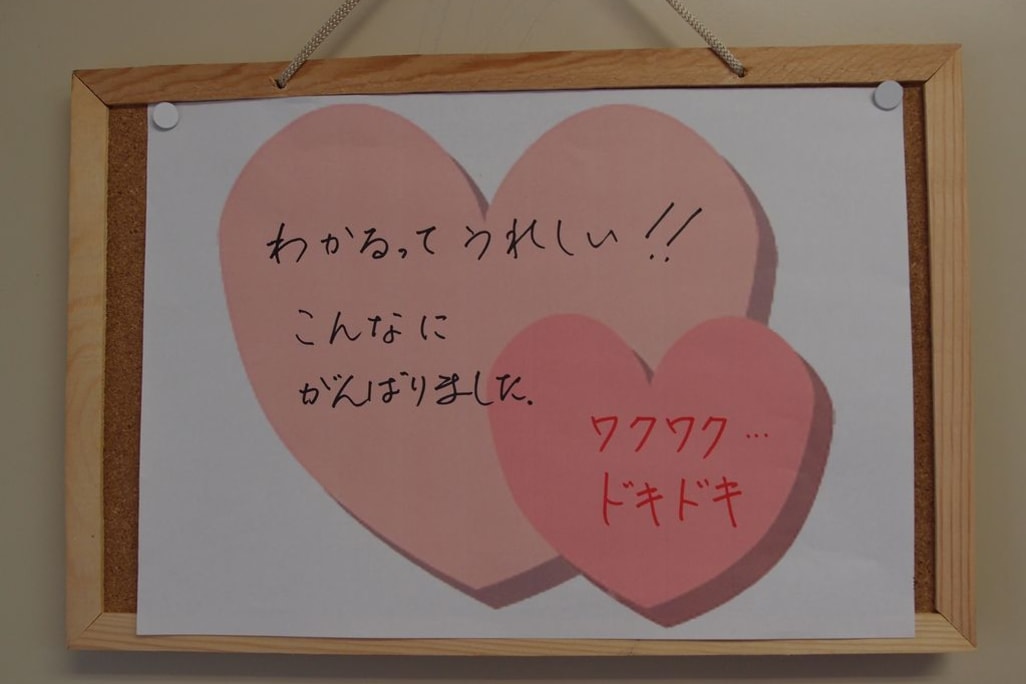 わかるって うれしい!!
こんなに
がんばりました.
ワクワク…
ドキドキ